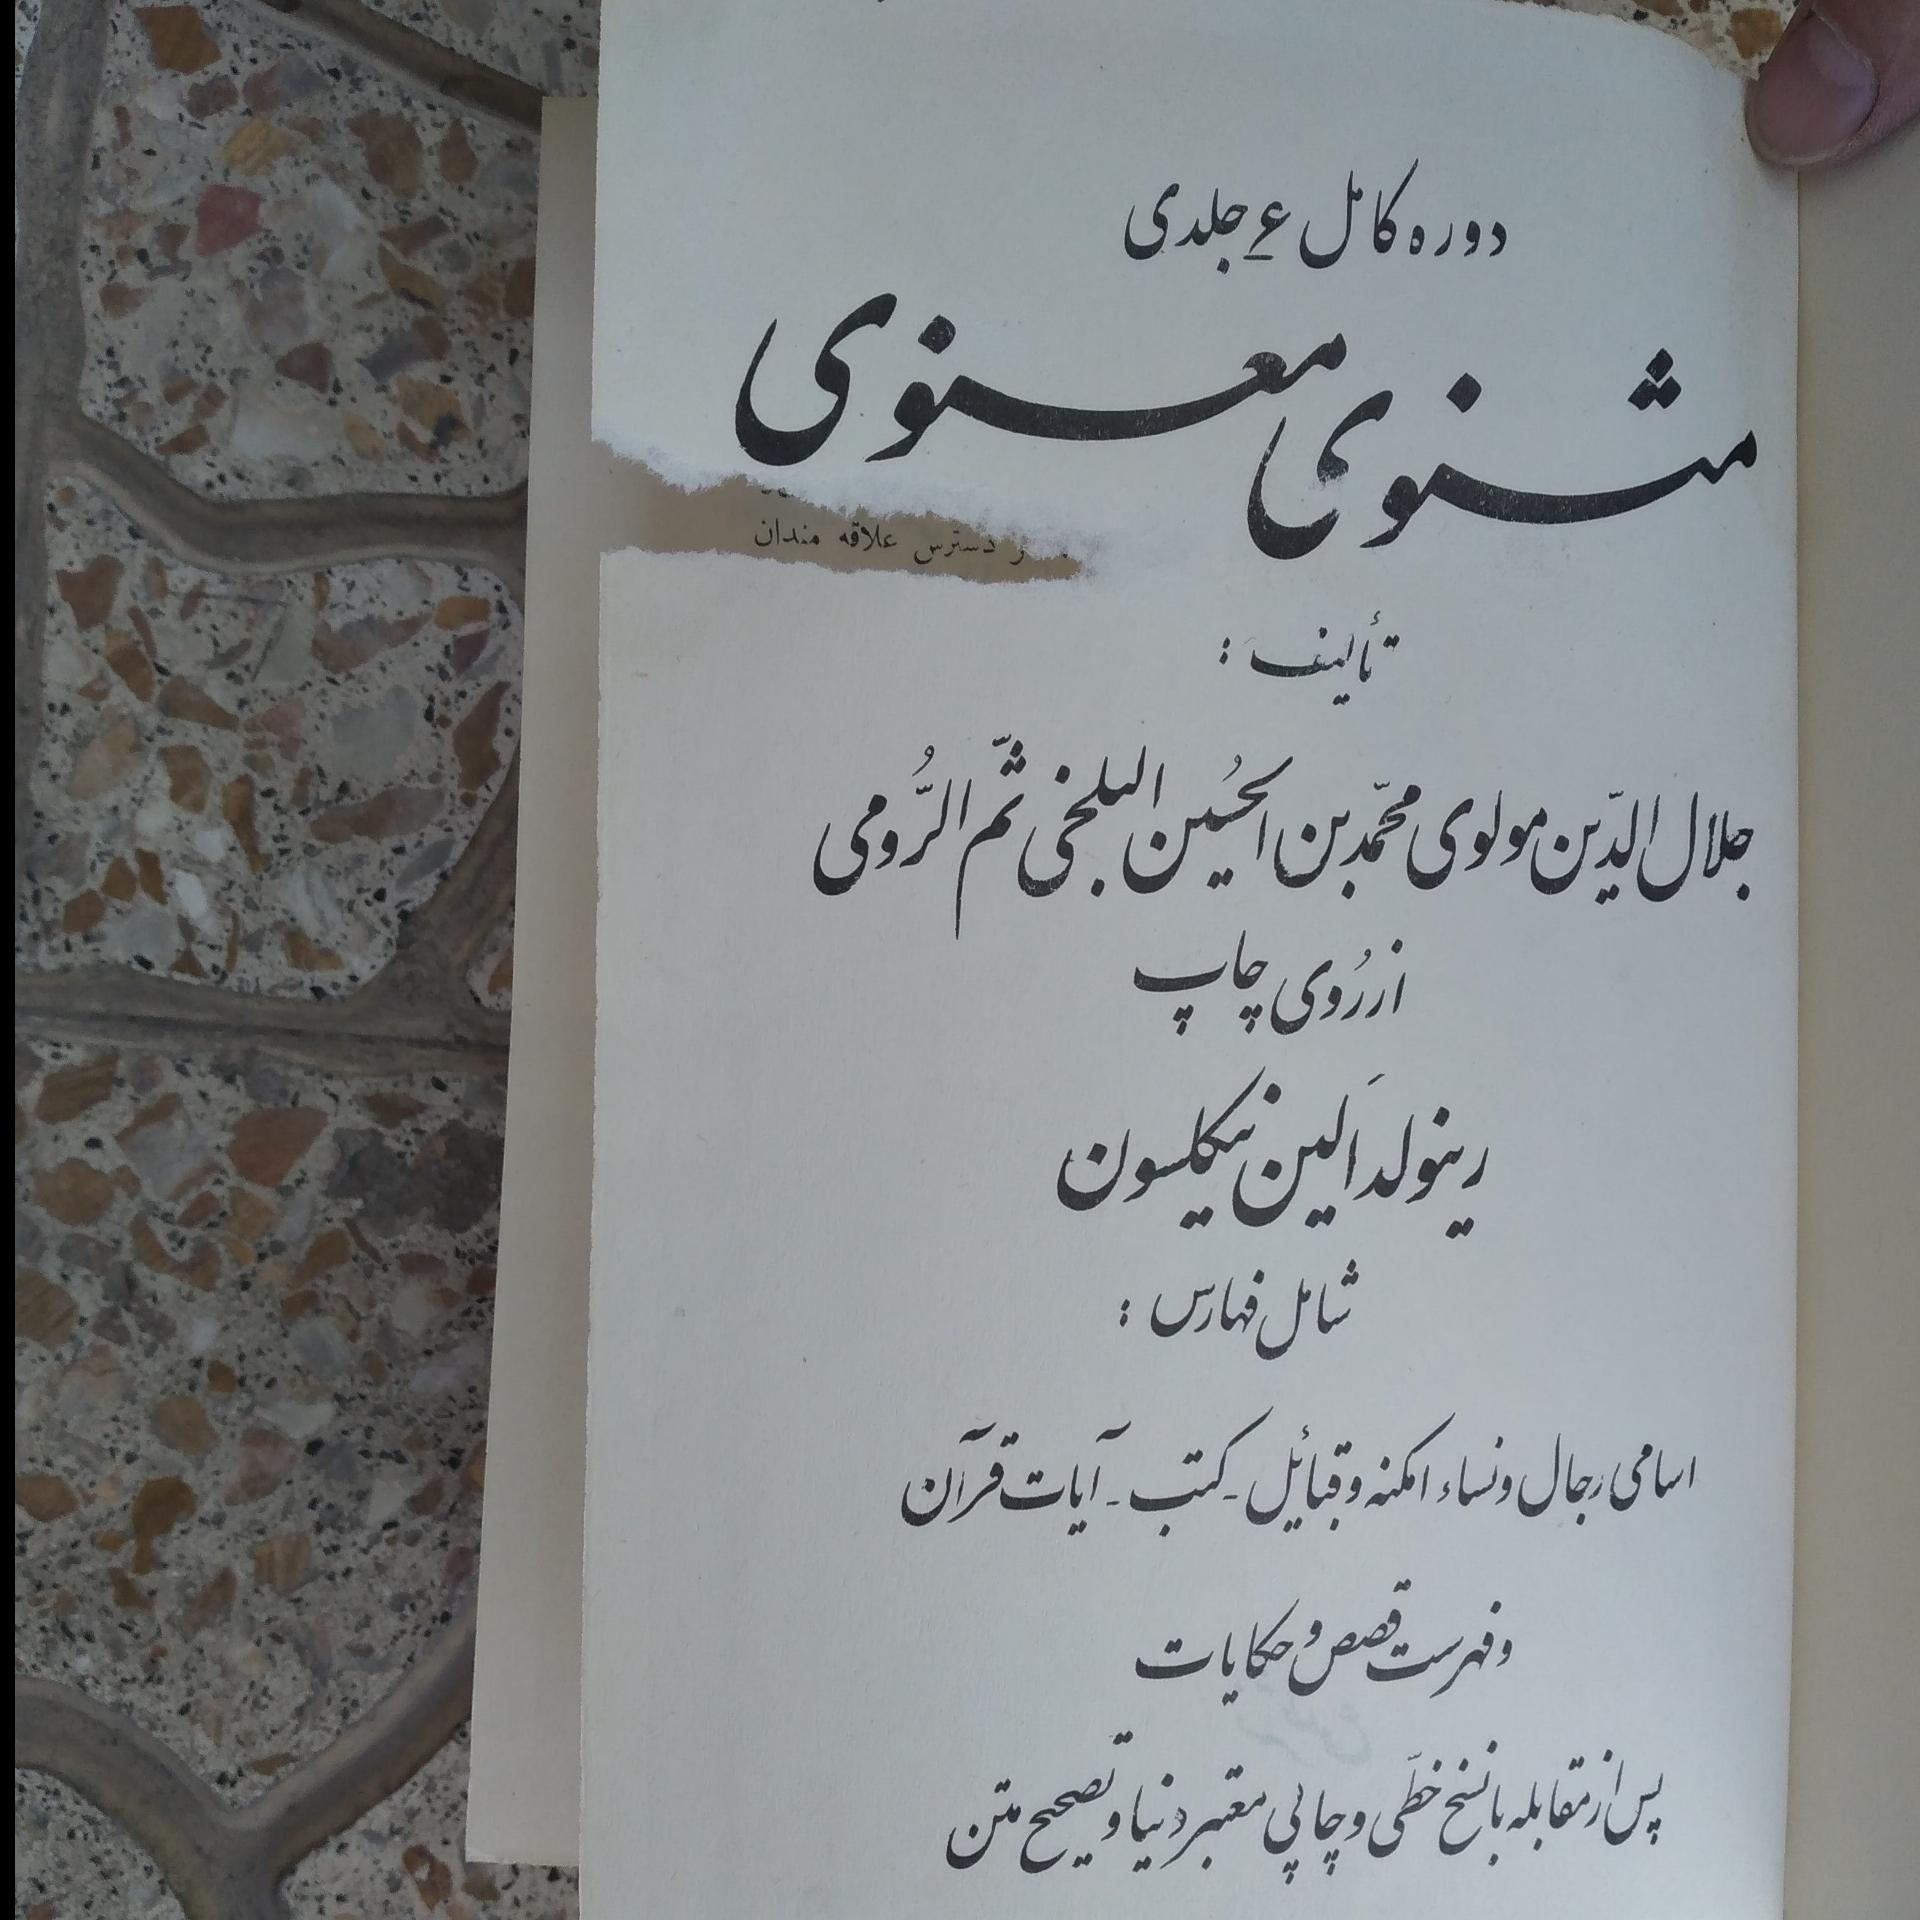 دوره کامل ۶ جلدی
مثنوی معنوی
دسترس علاقه مندان
تألیف :
جلال الدّین مولوی محمّد بن الحُسین البلخی ثمّ الرُّومی
از رُوی چاپ
رینولد اَلین نیکلسون
شامل فهارس :
اسامی رجال و نساء امکنه و قبائل - کتب - آیات قرآن
و فهرست قصص و حکایات
پس از مقابله با نسخ خطّی و چاپی معتبر دنیا و تصحیح متن